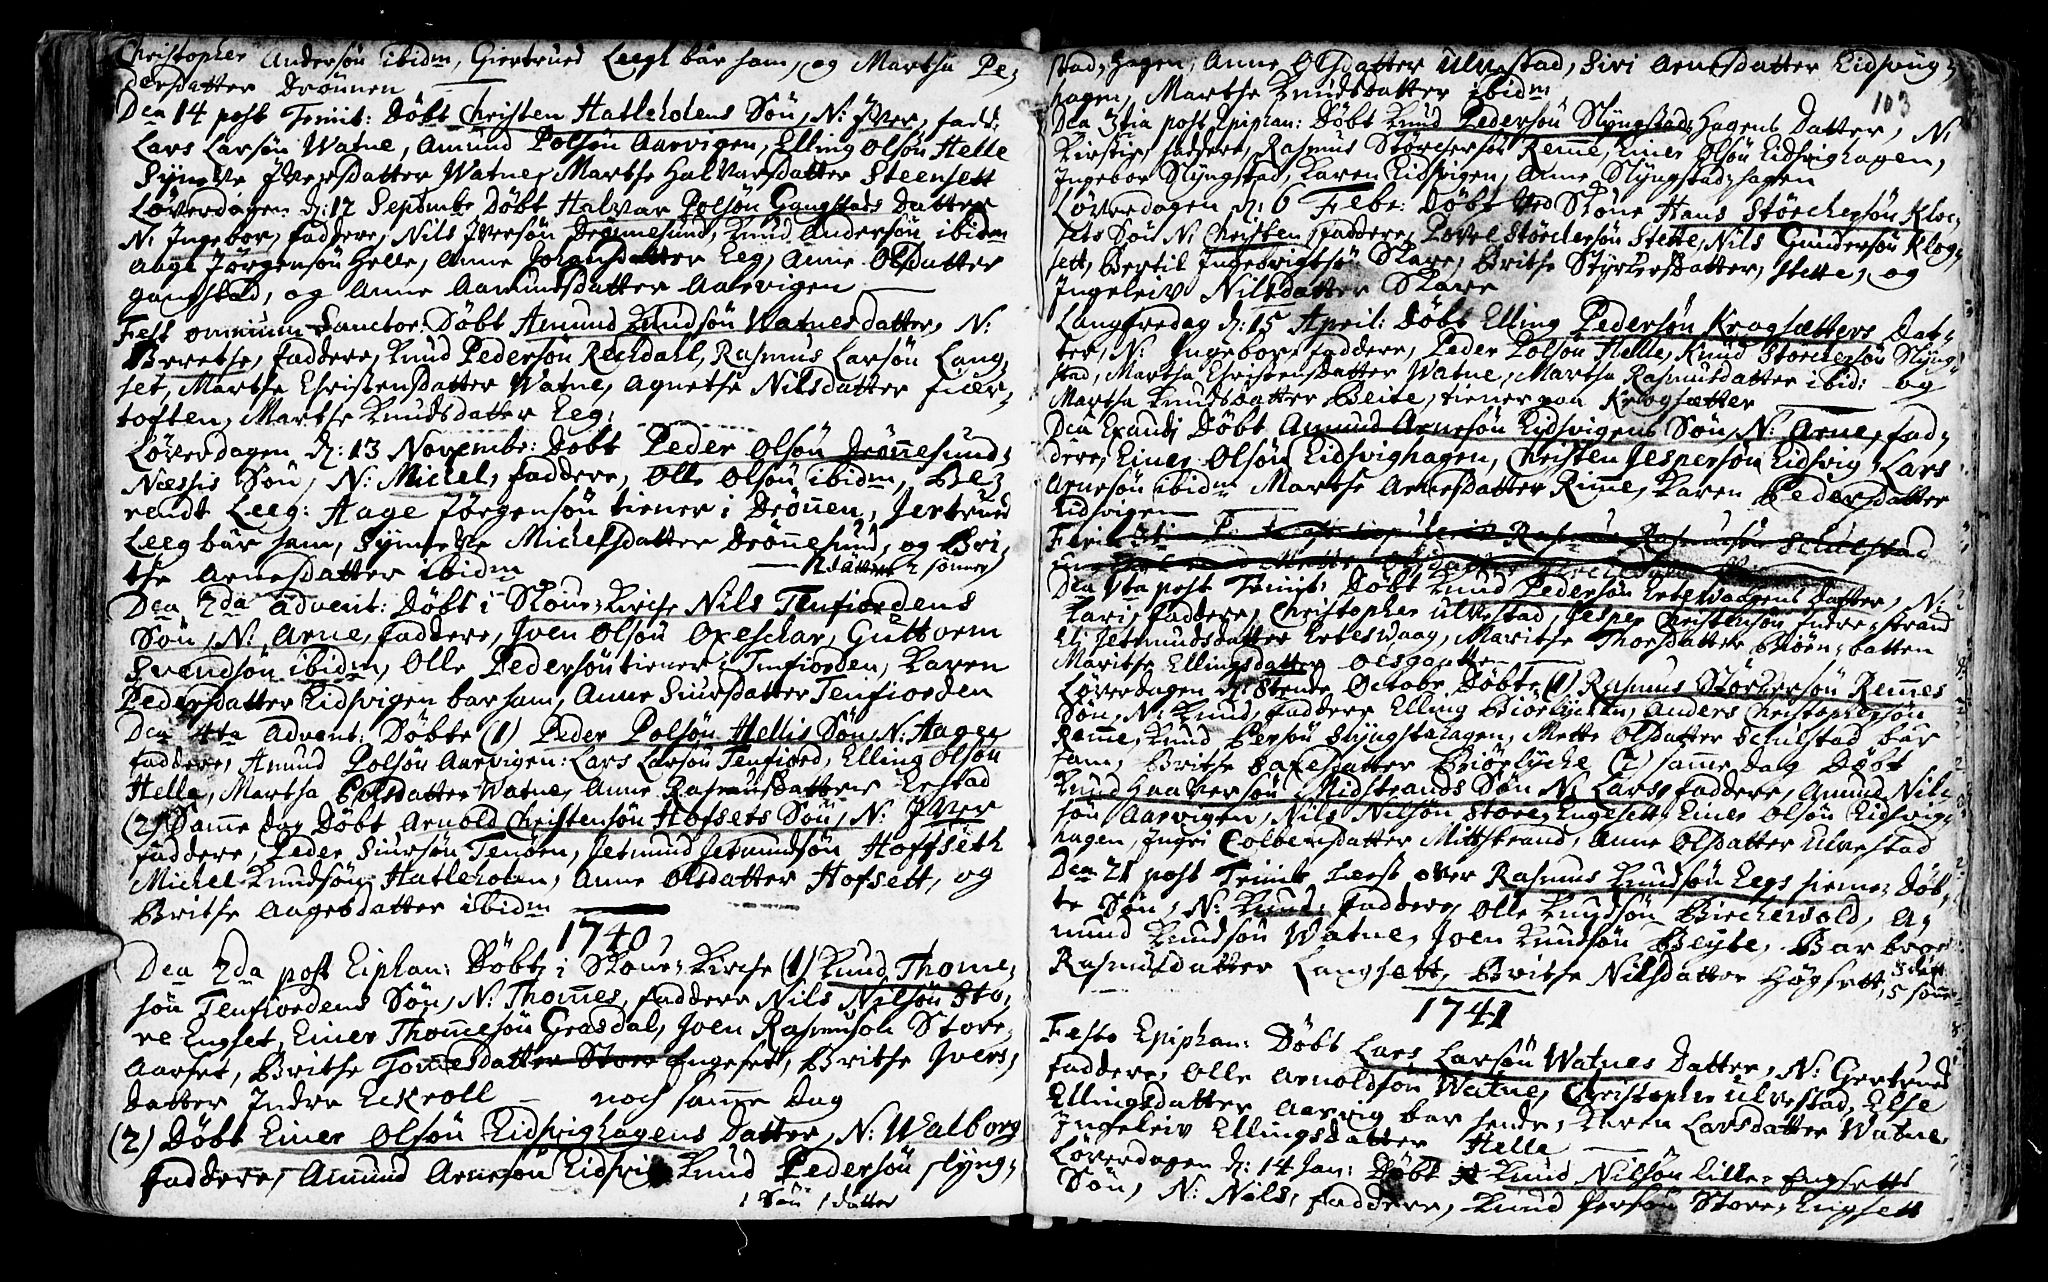 Christopher Andersøn ibidm, Giertrued Leegl bär ham, og Martha Pe,
dersdatter Drönnen
Den 14 post Trinit: Döbt Christen Hatleholens Sön, N: Jver, fadd:
Lars Larsön Watne, Amund Polsön Aarvigen, Elling Olsön Helle
Synneve Jversdatter Watne, Marthe Halvarsdatter Steensett
Löverdagen d: 17 Septembr Döbt Halvar Polsön Gangstads Datter
N: Ingebor, faddere, Nils Jversön Drönnesund, Knud Andersön ibidm
Aage Jörgensön Helle, Anne Johansdatter Eeg, Anne Olsdatter
gangstad, og Anne Aamundsdatter Aarvigen
Fest omnium Sanctor: Döbt Amund Knudsön Watnes datter, N:
Brethe, faddere, Knud Pedersön Rechdall, Rasmus Larsön Lang,
set, Marthe Christensdatter Watne, Agnethe Nilsdatter Fiær,
toften, Marthe Knudsdatter Eeg.
Löverdagen d: 13 Novembr: Döbt Peder Olsön Drönnesund,
Næssis Sön, N: Michel, faddere, Olle Olsön ibidm, Be,
rendt Leeg: Hage Jörgensön tiener i Drönen, Jertrued
Leeg bär ham, Synneve Michelsdatter Drönnesund, og Bri,
the Arnesdatter ibidm 2 sönner
Den 2da Advent: Döbt i Skoue-Kirche Nils Tenfiordens
Sön, N: Arne, faddere, Joen Olsön Oxeschar, Guttorm
Svendsön ibidm, Olle Pedersön tiener i Tenfiorden, Karen
Pedersdatter Eidsvigen bar ham, Anne Siursdatter Tenfiorden
Den 4ta Advent: Döbte (1) Peder Polsön Hellis Sön N: Aage
faddere, Amund Polsön Aarvigen: Lars Larsön Tenfiord, Elling Olsön
Helle, Martha Polsdatter Watne, Anne Rasmusdatter Erstad
(2) Samme dag Döbt Arnold Christensön Hofsets Sön, N: Jver
faddere, Peder Siursön Tenöen, Jetmund Jetmundsön Hoffseth
Michel Knudsön Hatleholen, Anne Olsdatter Hofsett, og
Brithe Aagesdatter ibidm
1740,
Den 2da post Epiphan: Döbt i Skoue-Kirche (1) Knud Thome,
sön Tenfiordens Sön, N: Thomes, faddere Nils Nilsön Sto,
re Engset, Einer Thomesön Grasdal, Joen Rasmusön Store,
Aarset, Brithe Tomesdatter Store Engesett, Brithe Jvers,
datter Indre Eckroll – noch samme Dag
(2) Döbt Einer Olsön Eidsvighagens Datter, N: Walborg
faddere, Amund Arnesön Eidsvig Knud Pedersön slyng,
1 Sön 1 datter
stad, hagen, Anne Olsdatter Ulvestad, Siri Arnesdatter Eidsvig,
hagen, Marthe Knudsdatter ibidm
103
Den 3tia post Epiphan: Döbt Knud Pedersön Slyngstad, Hagens Datter, N:
Kirstie, faddere, Rasmus Störchersön Remme, Einer Olsön Eidsvighagen,
Ingebor Slyngstad, Karen Eidsvigen, Anne Slyngstad,hagen
Löverdagen d: 6 Febr: Döbt ved Skoue Hans Störchersön Kloc,
sets Sön N: Christen faddere, Povel Störchersön Stette, Nils Gundersön Klog,
sett, Bertil Ingebrigtsön Skare, Brithe Styrkersdatter, stette, og
Ingeleiv Nilsdatter Skare
Langfredag d: 15 April: Döbt Elling Pedersön Krogsætters Dat,
ter, N: Ingebor, faddere, Peder Polsön Helle, Knud Störchersön Slyng,
stad, Martha Christensdatter Watne, Martha Rasmusdatter ibid: og
Martha Knudsdatter Beite, tiener paa Krogsætter
Den Exaudi Döbt Amund Arnesön Eidsvigens Sön, N: Arne, fad,
dere, Einer Olsön Eidsvighagen, Christen Jespersön Eidsvig, Lars
Arnesön ibidm Marthe Arnesdatter Rimme, Karen Pedersdatter
Eidsvigen
Rasmus Rasmusön Schulstad
Den 1ta post Trinit: Döbt Knud Pedersön Ertesvaagens Datter, N:
Kari, faddere, Christopher Ulvestad, Jesper Christensön Indre-strand
Eli Jetmundsdatter Ertesvaag, Marithe Thorsdatter Biörn, batten
Marithe Ellingsdatter Olsgarten
Löverdagen d: 8tende Octobr Döbte (1) Rasmus Störchersön Remmes
Sön, N: Knud, faddere Elling Biörlychen, Anders Christophersön
Remme, Knud Persön Slyngstadhagen, Mette Olsdatter Schulstad bar
ham, Brithe datter Biörlyche (2) samme dag Döbt
Knud Haaversön Midstrands Sön N: Lars, faddere, Amund Nils,
sön Aarvigen, Nils Nilsön Store, Engesett, Einer Olsön Eidsvig,
hagen, Ingri Colbensdatter Mittstrand, Anne Olsdatter Ulvestad
Den 21 post Trinit Læst over Rasmus Knudsön Eegs hieme, Döb,
te Sön, N: Knud, faddere, Olle Knudsön Birchewold, A,
mund Knudsön Watne, Joen Knudsön Beyte, Barbroe
Rasmusdatter Langsett, Brithe Nilsdatter Högsett, 3 dött
5 sönn
1741
Festo Epiphan: Döbt Lars Larsön Watnes Datter, N: Giertrued
faddere, Olle Arnoldsön Watne, Christopher Ulvestad, Else
Ellingsdatter Aarvig bar hende, Karen Larsdatter Watne
Ingeleiv Ellingsdatter Helle
Löverdagen d: 14 Jan: Döbt Knud Nilsön Lille-Engsetts
Sön, N: Nils, faddere, Knud Persön Store, Engsett